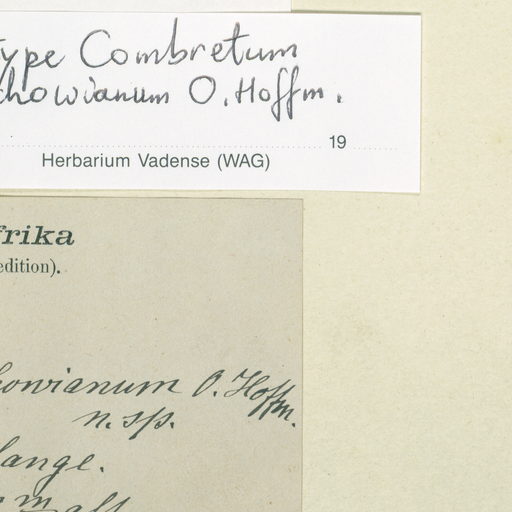 ype Combretum
howianum O. Hoffm.
19
Herbarium Vadense (WAG)
frika
edition).
owianum O. Hoffm.
n. sp.
lange.
m alt